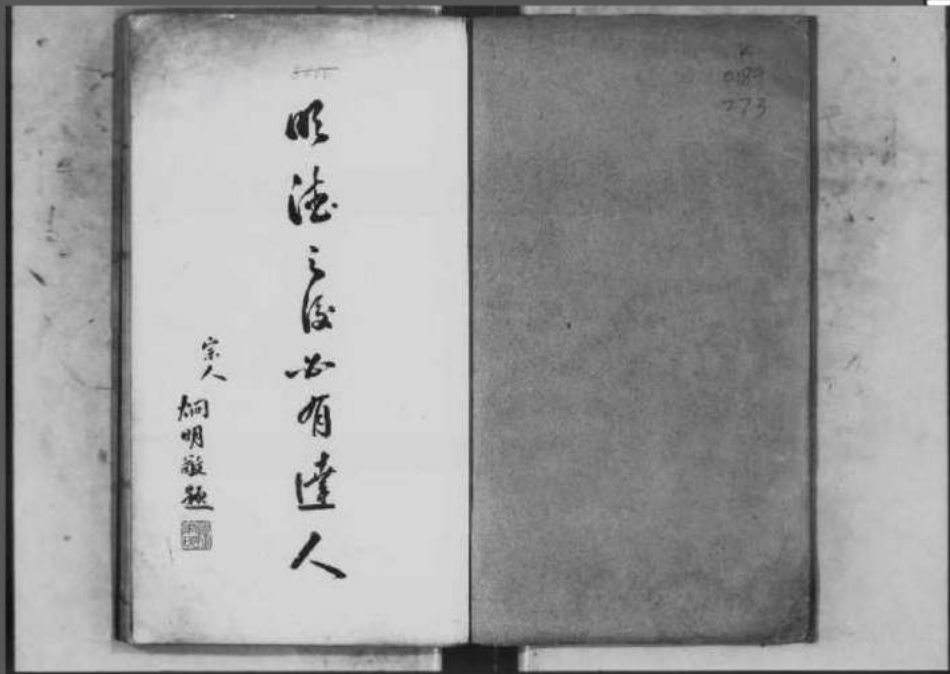 K
0189
273
明德之後必有達人
宗人
炯明敬題